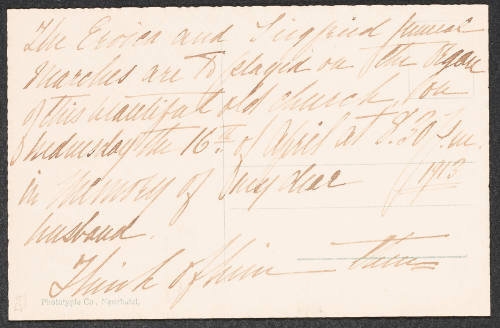 The Eroica and Siegfried funeral
Marches are to played on the organ
of this beautiful old church, on
Wednesday the 16th of April at 8.30 p.m.
in Memory of my dear 1913
husband.
Think of him — then
Phototypie Co., Neuchâtel.